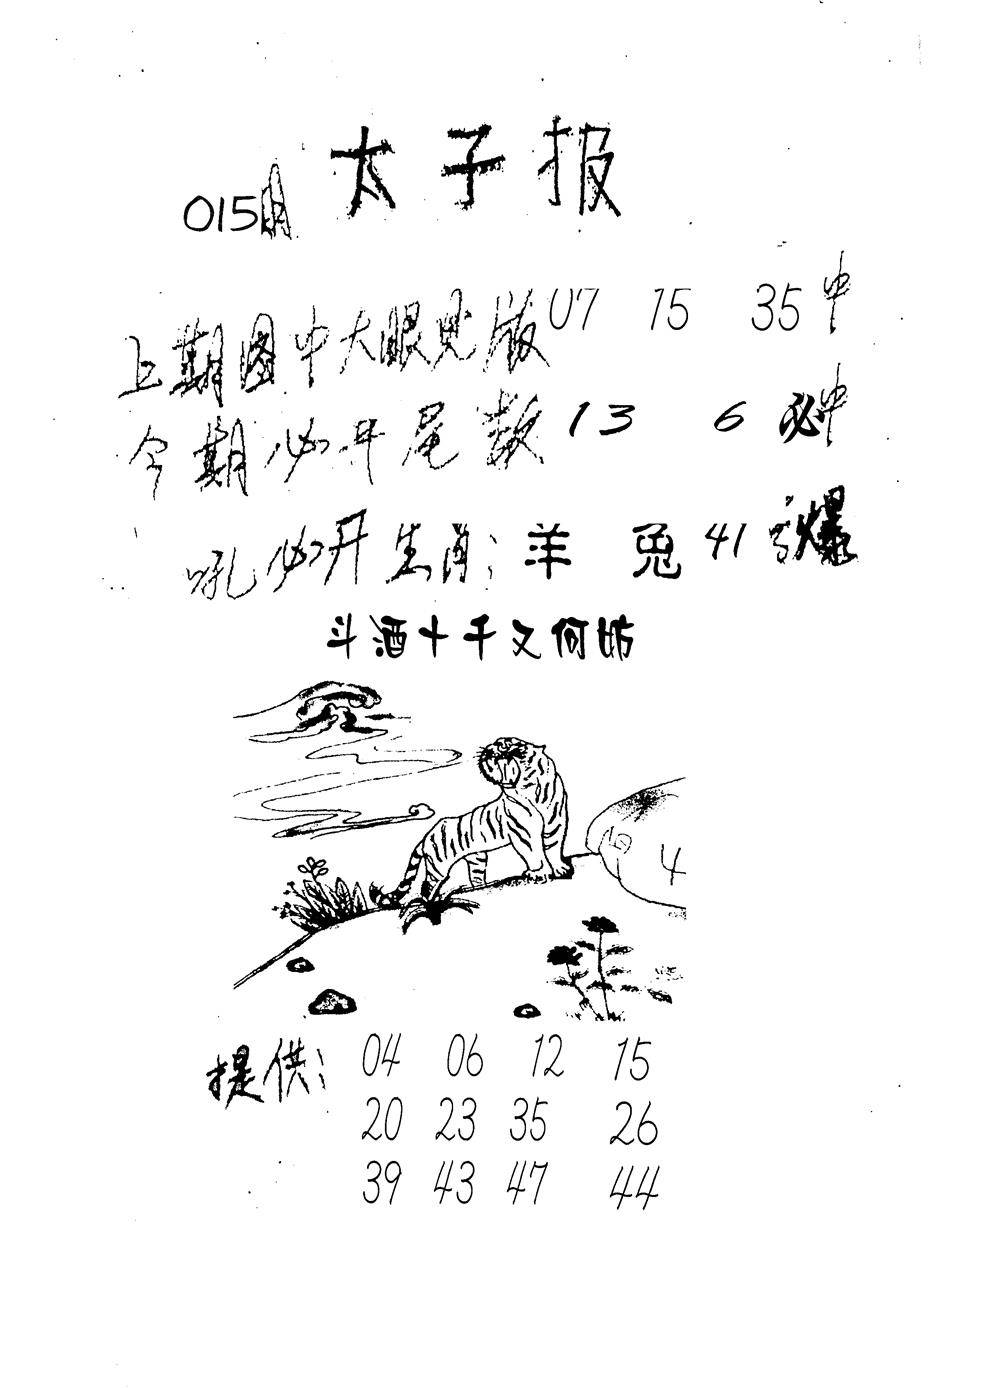 太子报
015期
上期图中大眼见版07 15 35中
今期必开尾数13 6必中
吼必开生肖：羊 兔 41号爆
斗酒十千又何妨
4
提供：04 06 12 15
20 23 35 26
39 43 47 44